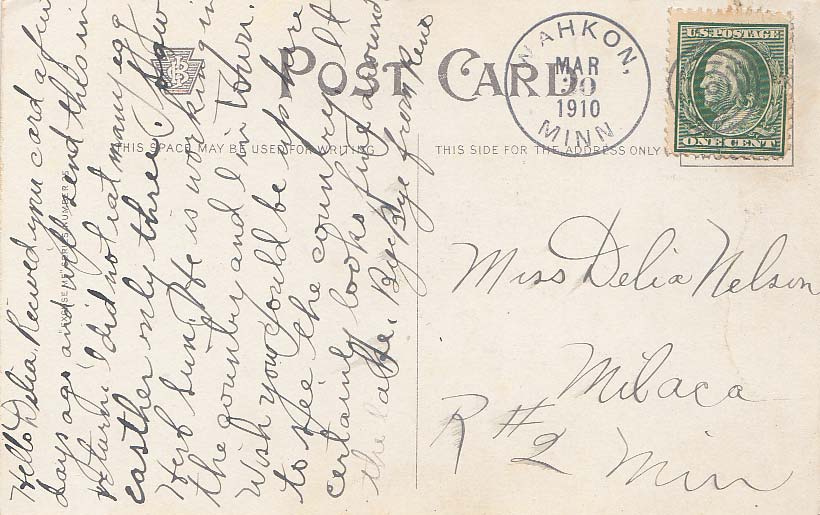 Hello Delia, Recieved your card a few
days ago and will send this in
return. I did not eat many egg
easther only three. I saw
Herb sun. He is working in
the country and I in town.
Wish you could be up here
to see the country. It
certainly looks fine around
the lake. Bye Bye from Reno
"EXCUSE ME" SERIES NUMBER
POST CARD
THIS SPACE MAY BE USED FOR WRITING
THIS SIDE FOR THE ADDRESS ONLY
WAHKON,
MAR
1910
MINN
U.S. POSTAGE
ONE CENT
Miss Delia Nelson
Milaca
R #2
Min